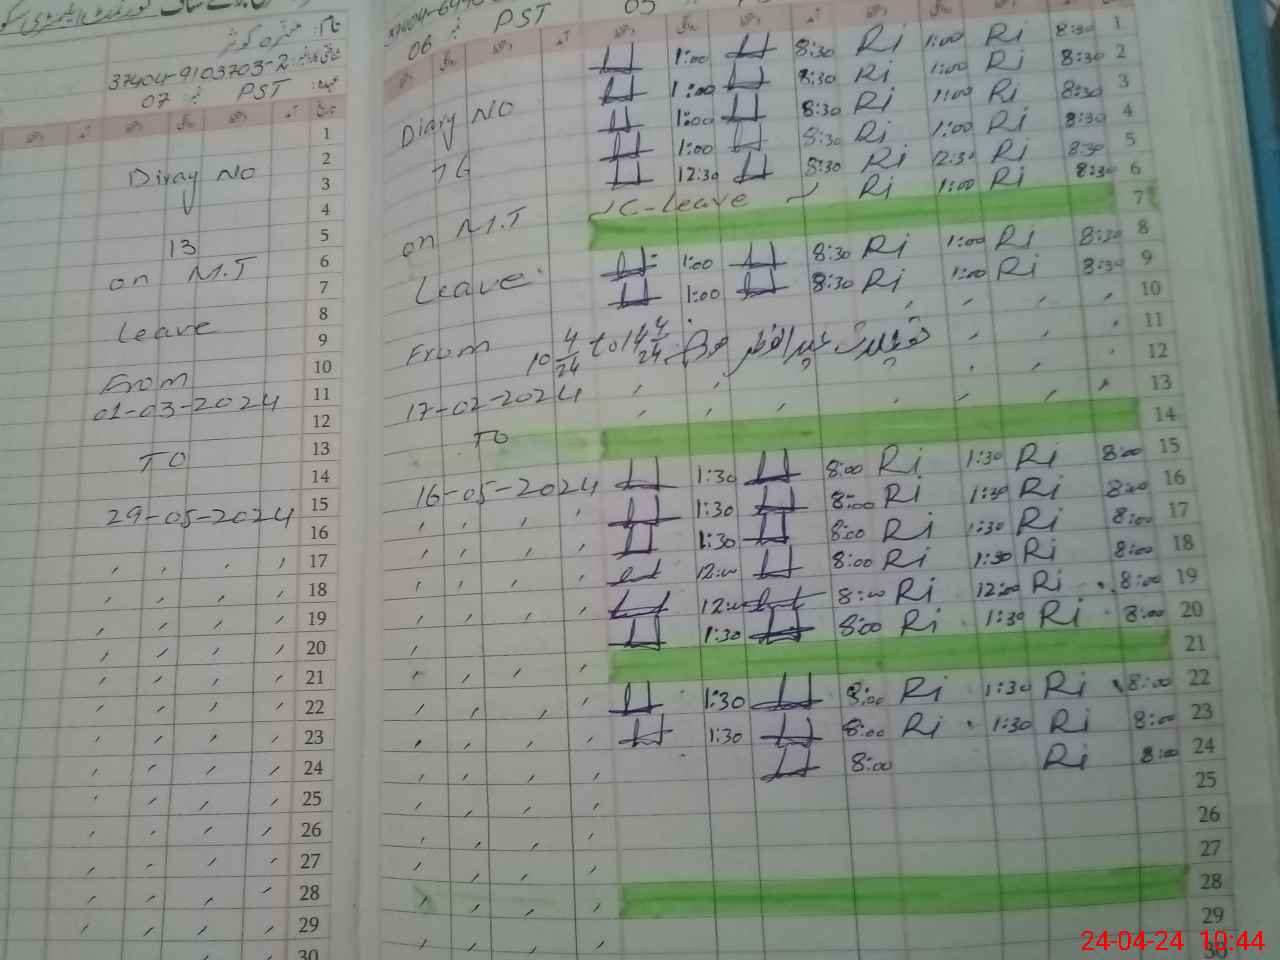 نام:
37404-9103703-2
07 PST
Diray NO
13
on M.T
Leave
From
01-03-2024
TO
29-05-2024
1
2
3
4
5
6
7
8
9
10
11
12
13
14
15
16
17
18
19
20
21
22
23
24
25
26
27
28
29
30
06 PST 05
Diary NO
76
on M.T
Leave
From
17-02-2024
TO
16-05-2024
1:00 8:30 Ri 1:00 Ri 8:30 1
1:00 8:30 Ri 1:00 Ri 8:30 2
1:00 8:30 Ri 1:00 Ri 8:30 3
1:00 8:30 Ri 1:00 Ri 8:30 4
12:30 8:30 Ri 12:30 Ri 8:30 5
C-Leave Ri 1:00 Ri 8:30 6
7
1:00 8:30 Ri 1:00 Ri 8:30 8
1:00 8:30 Ri 1:00 Ri 8:30 9
10
10 4/24 to 14 4/24 عیدالفطر 11
12
13
14
1:30 8:00 Ri 1:30 Ri 8:00 15
1:30 8:00 Ri 1:30 Ri 8:00 16
1:30 8:00 Ri 1:30 Ri 8:00 17
12:00 8:00 Ri 1:30 Ri 8:00 18
12:00 8:00 Ri 12:00 Ri 8:00 19
1:30 8:00 Ri 1:30 Ri 8:00 20
21
1:30 8:00 Ri 1:30 Ri 8:00 22
1:30 8:00 Ri 1:30 Ri 8:00 23
8:00 Ri 8:00 24
25
26
27
28
29
30
24-04-24 10:44